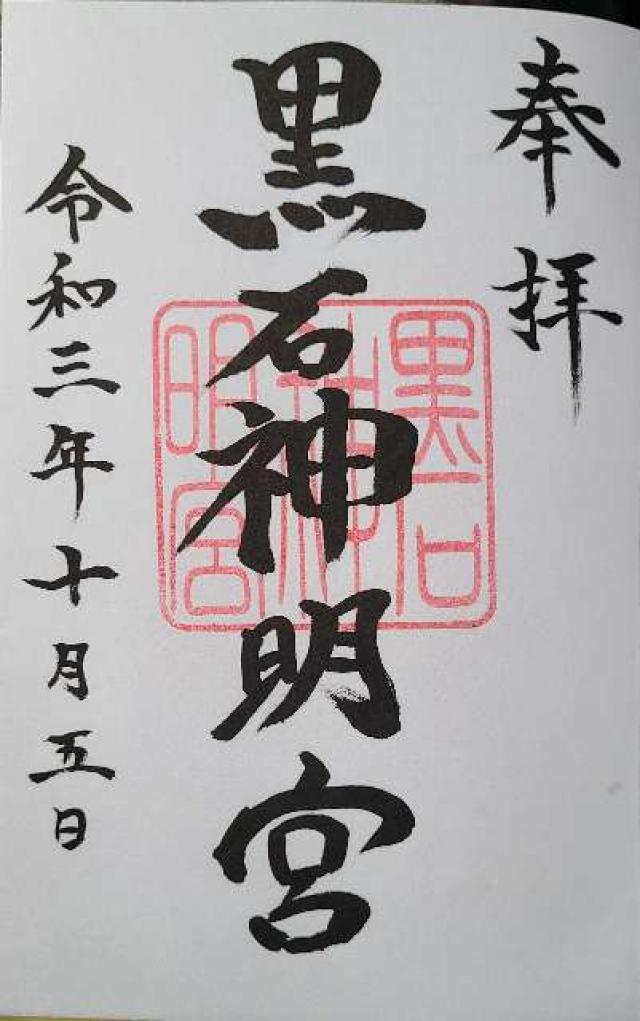 奉拝
黒石神明宮
黒石神明宮
令和三年十月五日